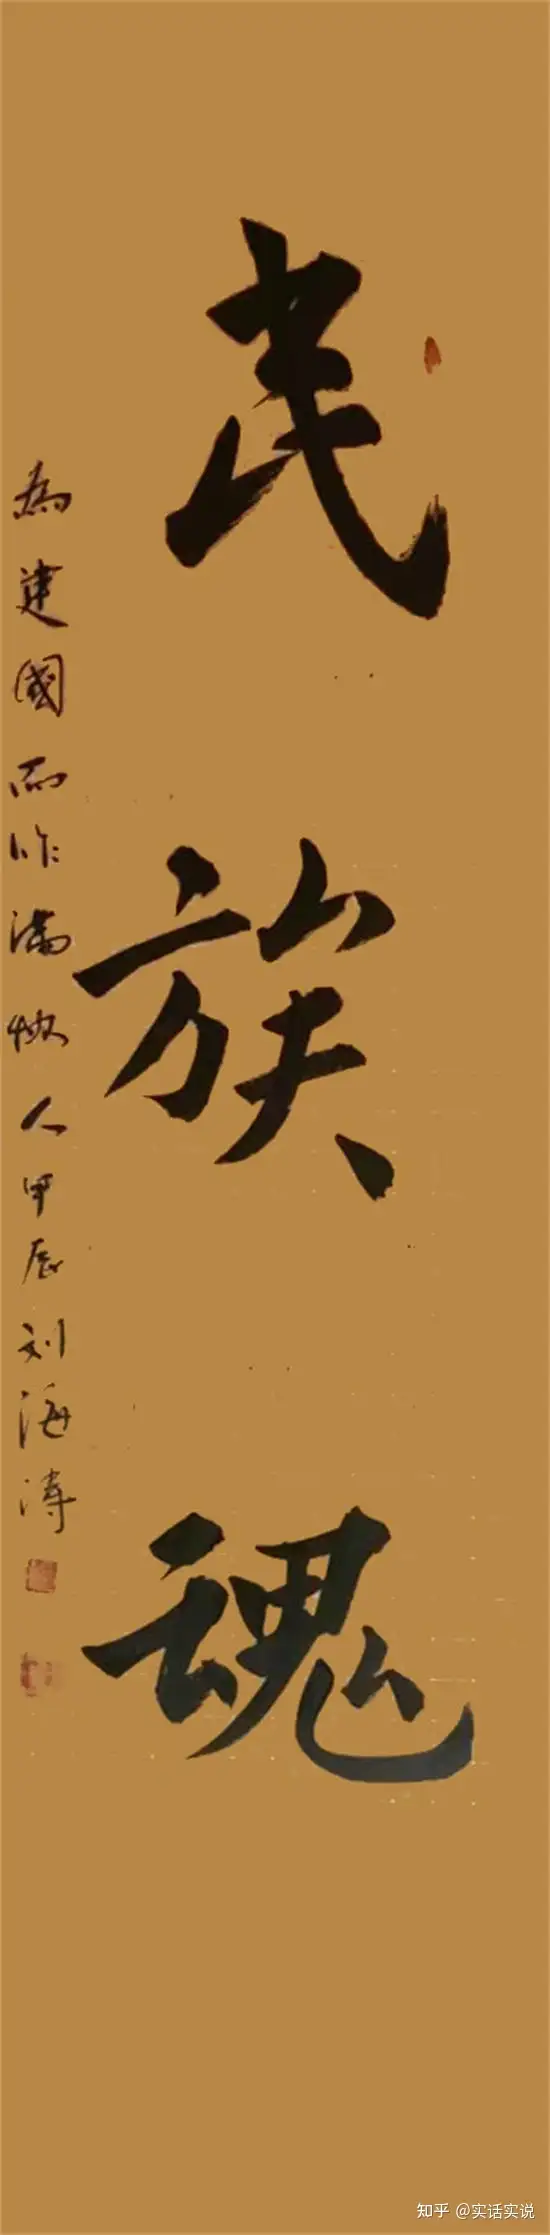 民族魂
為建國而作满懷人甲辰刘海涛
知乎 @实话实说